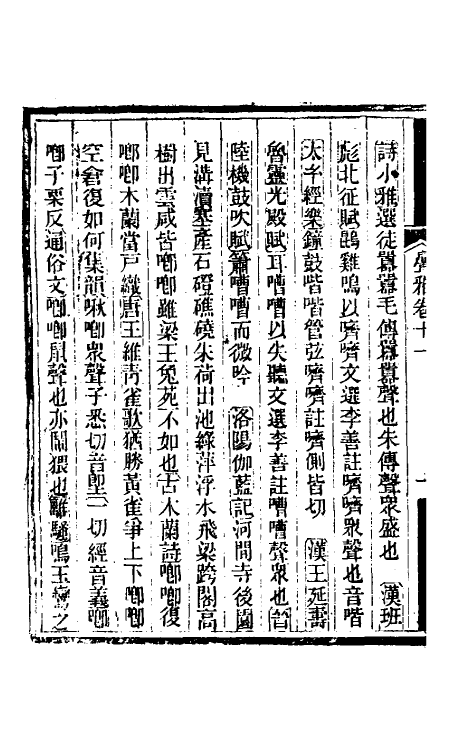 詩小雅選徒囂囂毛傳囂囂聲也朱傳聲眾盛也　漢班
彪北征賦鵾雞鳴以嚌嚌文選李善註嚌嚌眾聲也音喈
太子經樂鐘鼓喈喈管弦嚌嚌註嚌側皆切　漢王延壽
魯靈光殿賦耳嘈嘈以失聽文選李善註嘈嘈聲眾也　晉
陸機鼓吹賦簫嘈嘈而微吟　洛陽伽藍記河間寺後園
見溝瀆蹇產石磴礁磽朱荷出池綠萍浮水飛梁跨閣高
樹出雲咸皆唧唧雖梁王兔苑不如也古木蘭詩唧唧復
唧唧木蘭當戶織唐王維青雀歌猶勝黃雀爭上下唧唧
空倉復如何集韻啾唧眾聲子悉切音堲一切經音義唧
唧子栗反通俗文唧唧鼠聲也亦鬧猥也離騷鳴玉鸞之
疊雅卷十一